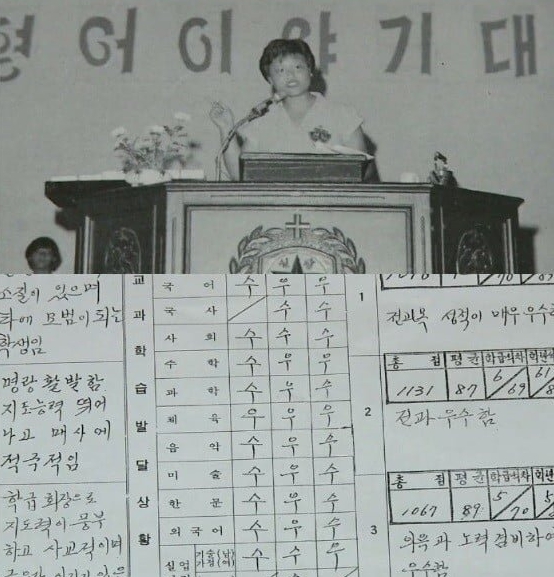 형 어 이 야 기 대
소질이 있으며
타에 모범이 되는
학생임
명랑 활발함
지도능력 뛰어
나고 매사에
적극적임
학급 회장으로
지도력이 풍부
하고 사교적이며
교과학습발달상황
국 어 수 우 우
국 사 수 수
사 회 수 수 수
수 학 수 우 우
과 학 수 우 수
체 육 우 우 우
음 악 수 우 우
미 술 수 수 수
한 문 수 우 수
외 국 어 수 우 우
실업 기술(남) 가정(여) 수 수 우
1
전과목 성적이 매우 우수
총 점 평 균 학급석차 학년
1131 87 6/69 61
2
전과 우수함
총 점 평 균 학급석차 학년
1067 89 5/70 5
3
의욕과 노력 겸비하여
우수함